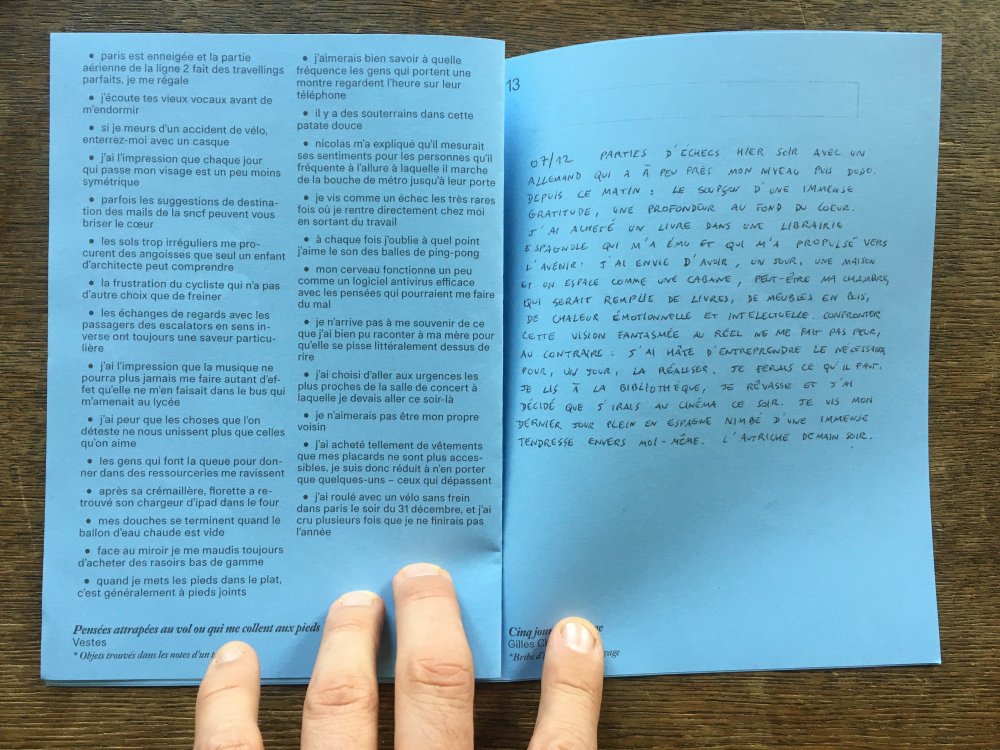 ● paris est enneigée et la partie
aérienne de la ligne 2 fait des travellings
parfaits, je me régale
● j'écoute tes vieux vocaux avant de
m'endormir
● si je meurs d'un accident de vélo,
enterrez-moi avec un casque
● j'ai l'impression que chaque jour
qui passe mon visage est un peu moins
symétrique
● parfois les suggestions de destina-
tion des mails de la sncf peuvent vous
briser le cœur
● les sols trop irréguliers me pro-
curent des angoisses que seul un enfant
d'architecte peut comprendre
● la frustration du cycliste qui n'a pas
d'autre choix que de freiner
● les échanges de regards avec les
passagers des escalators en sens in-
verse ont toujours une saveur particu-
lière
● j'ai l'impression que la musique ne
pourra plus jamais me faire autant d'ef-
fet qu'elle ne m'en faisait dans le bus qui
m'amenait au lycée
● j'ai peur que les choses que l'on
déteste ne nous unissent plus que celles
qu'on aime
● les gens qui font la queue pour don-
ner dans des ressourceries me ravissent
● après sa crémaillère, florette a re-
trouvé son chargeur d'ipad dans le four
● mes douches se terminent quand le
ballon d'eau chaude est vide
● face au miroir je me maudis toujours
d'acheter des rasoirs bas de gamme
● quand je mets les pieds dans le plat,
c'est généralement à pieds joints
● j'aimerais bien savoir à quelle
fréquence les gens qui portent une
montre regardent l'heure sur leur
téléphone
● il y a des souterrains dans cette
patate douce
● nicolas m'a expliqué qu'il mesurait
ses sentiments pour les personnes qu'il
fréquente à l'allure à laquelle il marche
de la bouche de métro jusqu'à leur porte
● je vis comme un échec les très rares
fois où je rentre directement chez moi
en sortant du travail
● à chaque fois j'oublie à quel point
j'aime le son des balles de ping-pong
● mon cerveau fonctionne un peu
comme un logiciel antivirus efficace
avec les pensées qui pourraient me faire
du mal
● je n'arrive pas à me souvenir de ce
que j'ai bien pu raconter à ma mère pour
qu'elle se pisse littéralement dessus de
rire
● j'ai choisi d'aller aux urgences les
plus proches de la salle de concert à
laquelle je devais aller ce soir-là
● je n'aimerais pas être mon propre
voisin
● j'ai acheté tellement de vêtements
que mes placards ne sont plus acces-
sibles, je suis donc réduit à n'en porter
que quelques-uns – ceux qui dépassent
● j'ai roulé avec un vélo sans frein
dans paris le soir du 31 décembre, et j'ai
cru plusieurs fois que je ne finirais pas
l'année
Pensées attrapées au vol ou qui me collent aux pieds
Vestes
* Objets trouvés dans les notes d'un
13
07/12 PARTIES D'ÉCHECS HIER SOIR AVEC UN
ALLEMAND QUI A À PEU PRÈS MON NIVEAU PUIS DODO.
DEPUIS CE MATIN : LE SOUPÇON D'UNE IMMENSE
GRATITUDE, UNE PROFONDEUR AU FOND DU COEUR.
J'AI ACHETÉ UN LIVRE DANS UNE LIBRAIRIE
ESPAGNOLE QUI M'A ÉMU ET QUI M'A PROPULSÉ VERS
L'AVENIR : J'AI ENVIE D'AVOIR, UN JOUR, UNE MAISON
ET UN ESPACE COMME UNE CABANE, PEUT-ÊTRE MA CHAMBRE,
QUI SERAIT REMPLIE DE LIVRES, DE MEUBLES EN BOIS,
DE CHALEUR ÉMOTIONNELLE ET INTELECTUELLE. CONFRONTER
CETTE VISION FANTASMÉE AU RÉEL NE ME FAIT PAS PEUR,
AU CONTRAIRE : J'AI HÂTE D'ENTREPRENDRE LE NÉCESSAIRE
POUR, UN JOUR, LA RÉALISER. JE FERAIS CE QU'IL FAUT.
JE LIS À LA BIBLIOTHÈQUE, JE RÊVASSE ET J'AI
DÉCIDÉ QUE J'IRAIS AU CINÉMA CE SOIR. JE VIS MON
DERNIER JOUR PLEIN EN ESPAGNE NIMBÉ D'UNE IMMENSE
TENDRESSE ENVERS MOI-MÊME. L'AUTRICHE DEMAIN SOIR.
Cinq
Gilles
*Bribe